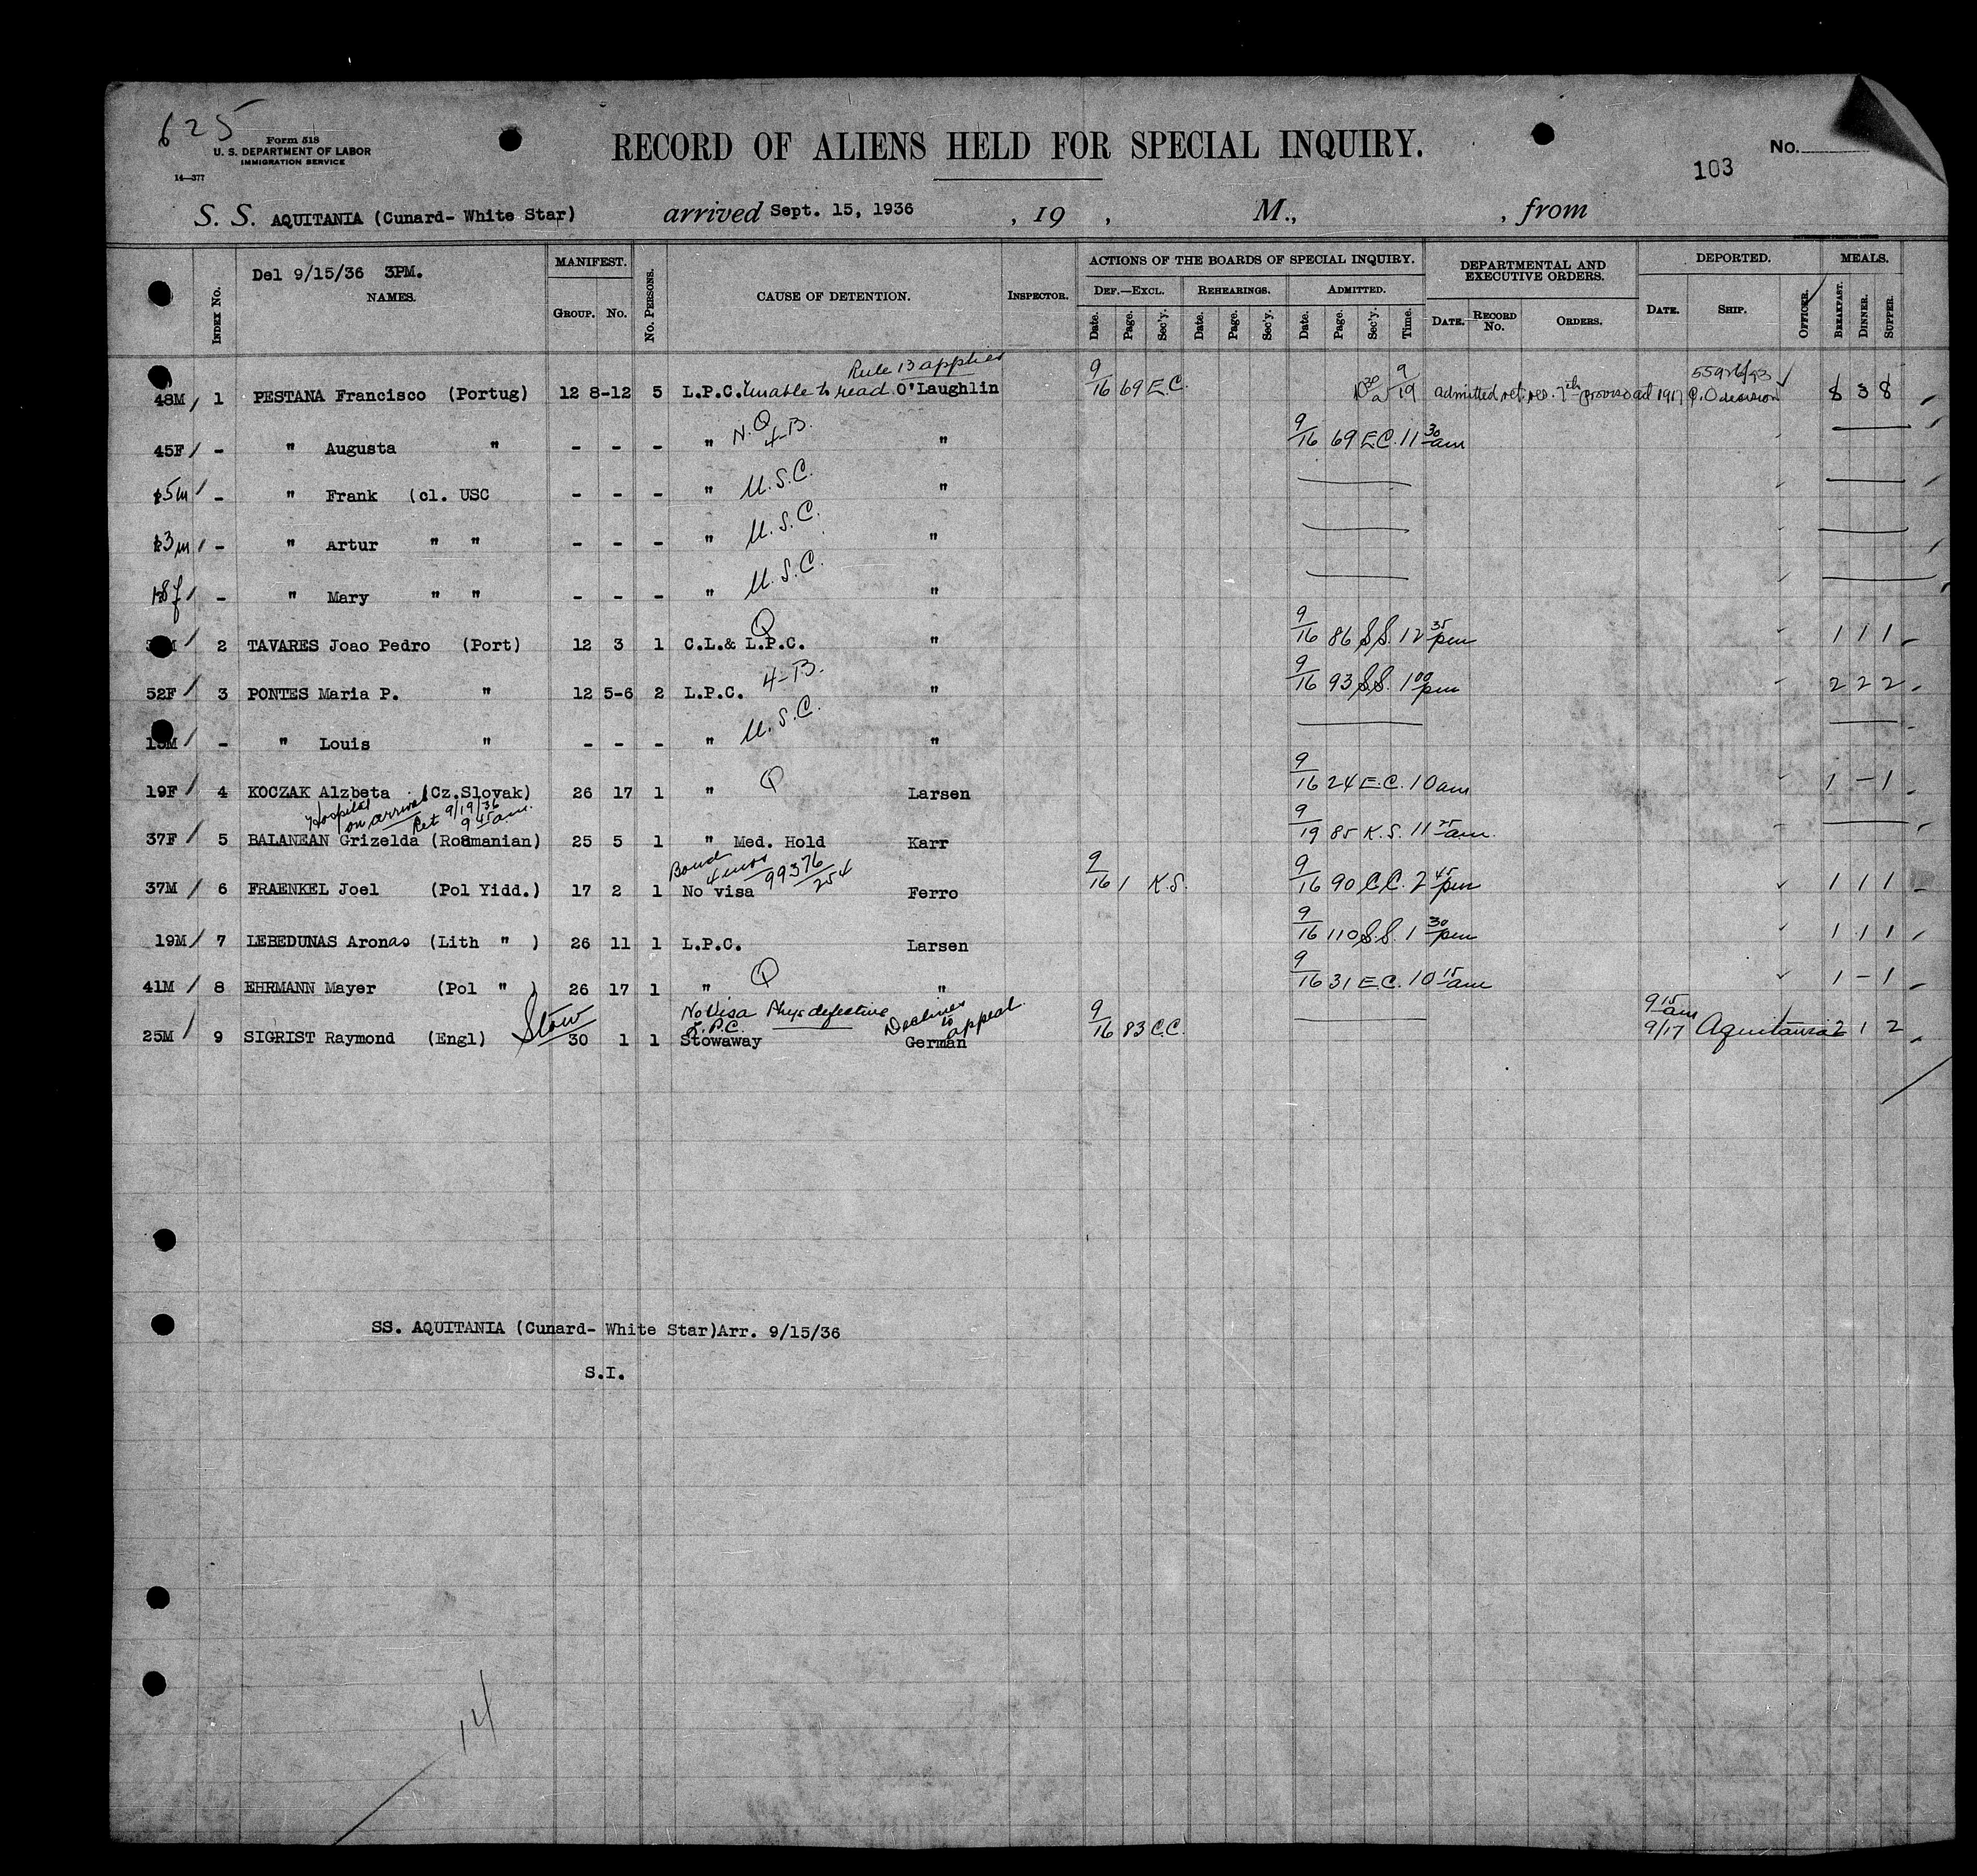 625
Form 518
U. S. DEPARTMENT OF LABOR
IMMIGRATION SERVICE
14—377
RECORD OF ALIENS HELD FOR SPECIAL INQUIRY.
No.
103
S. S. AQUITANIA (Cunard- White Star) arrived Sept. 15, 1936 , 19 , M., , from
Del 9/15/36 3PM.
MANIFEST. ACTIONS OF THE BOARDS OF SPECIAL INQUIRY. DEPARTMENTAL AND EXECUTIVE ORDERS. DEPORTED. MEALS.
Index No. NAMES. Group. No. No. Persons. CAUSE OF DETENTION. Inspector. Def.—Excl. Rehearings. Admitted.
Date. Page. Sec'y. Date. Page. Sec'y. Date. Page. Sec'y. Time. Date. Record No. Orders. Date. Ship. Officer. Breakfast. Dinner. Supper.
Rule 13 applies
48M 1 PESTANA Francisco (Portug) 12 8-12 5 L.P.C. Unable to read O'Laughlin 9/16 69 E.C. 10 30 a 9/19 admitted 7th proviso act 1917 C.O decision 8 3 8
N.Q 4-B.
45F - " Augusta " - - - " " 9/16 69 E.C. 11 30 am
5m - " Frank (cl. USC - - - " U.S.C. "
3m - " Artur " " - - - " U.S.C. "
8f - " Mary " " - - - " U.S.C. "
Q
2 TAVARES Joao Pedro (Port) 12 3 1 C.L.& L.P.C. " 9/16 86 S.S. 12 35 pm 1 1 1
52F 3 PONTES Maria P. " 12 5-6 2 L.P.C. 4-B. " 9/16 93 S.S. 1 00 pm 2 2 2
- " Louis " - - - " U.S.C. "
19F 4 KOCZAK Alzbeta (Cz.Slovak) 26 17 1 " Q Larsen 9/16 24 E.C. 10 am 1 - 1
Hospital on arrival Ret 9/19/36 9 45 am.
37F 5 BALANEAN Grizelda (Roumanian) 25 5 1 " Med. Hold Karr 9/19 85 K.S. 11 25 am.
Bond 4 mos 99376/254
37M 6 FRAENKEL Joel (Pol Yidd.) 17 2 1 No visa Ferro 9/16 1 K.S. 9/16 90 C.C. 2 45 pm 1 1 1
19M 7 LEBEDUNAS Aronas (Lith " ) 26 11 1 L.P.C. Larsen 9/16 110 S.S. 1 30 pm 1 1 1
41M 8 EHRMANN Mayer (Pol " ) 26 17 1 " Q " 9/16 31 E.C. 10 15 am 1 - 1
No Visa Phys defective Declines to appeal
L.P.C.
25M 9 SIGRIST Raymond (Engl) Stow 30 1 1 Stowaway German 9/16 83 C.C. 9 15 am 9/17 Aquitania 2 1 2
SS. AQUITANIA (Cunard- White Star)Arr. 9/15/36
S.I.
14